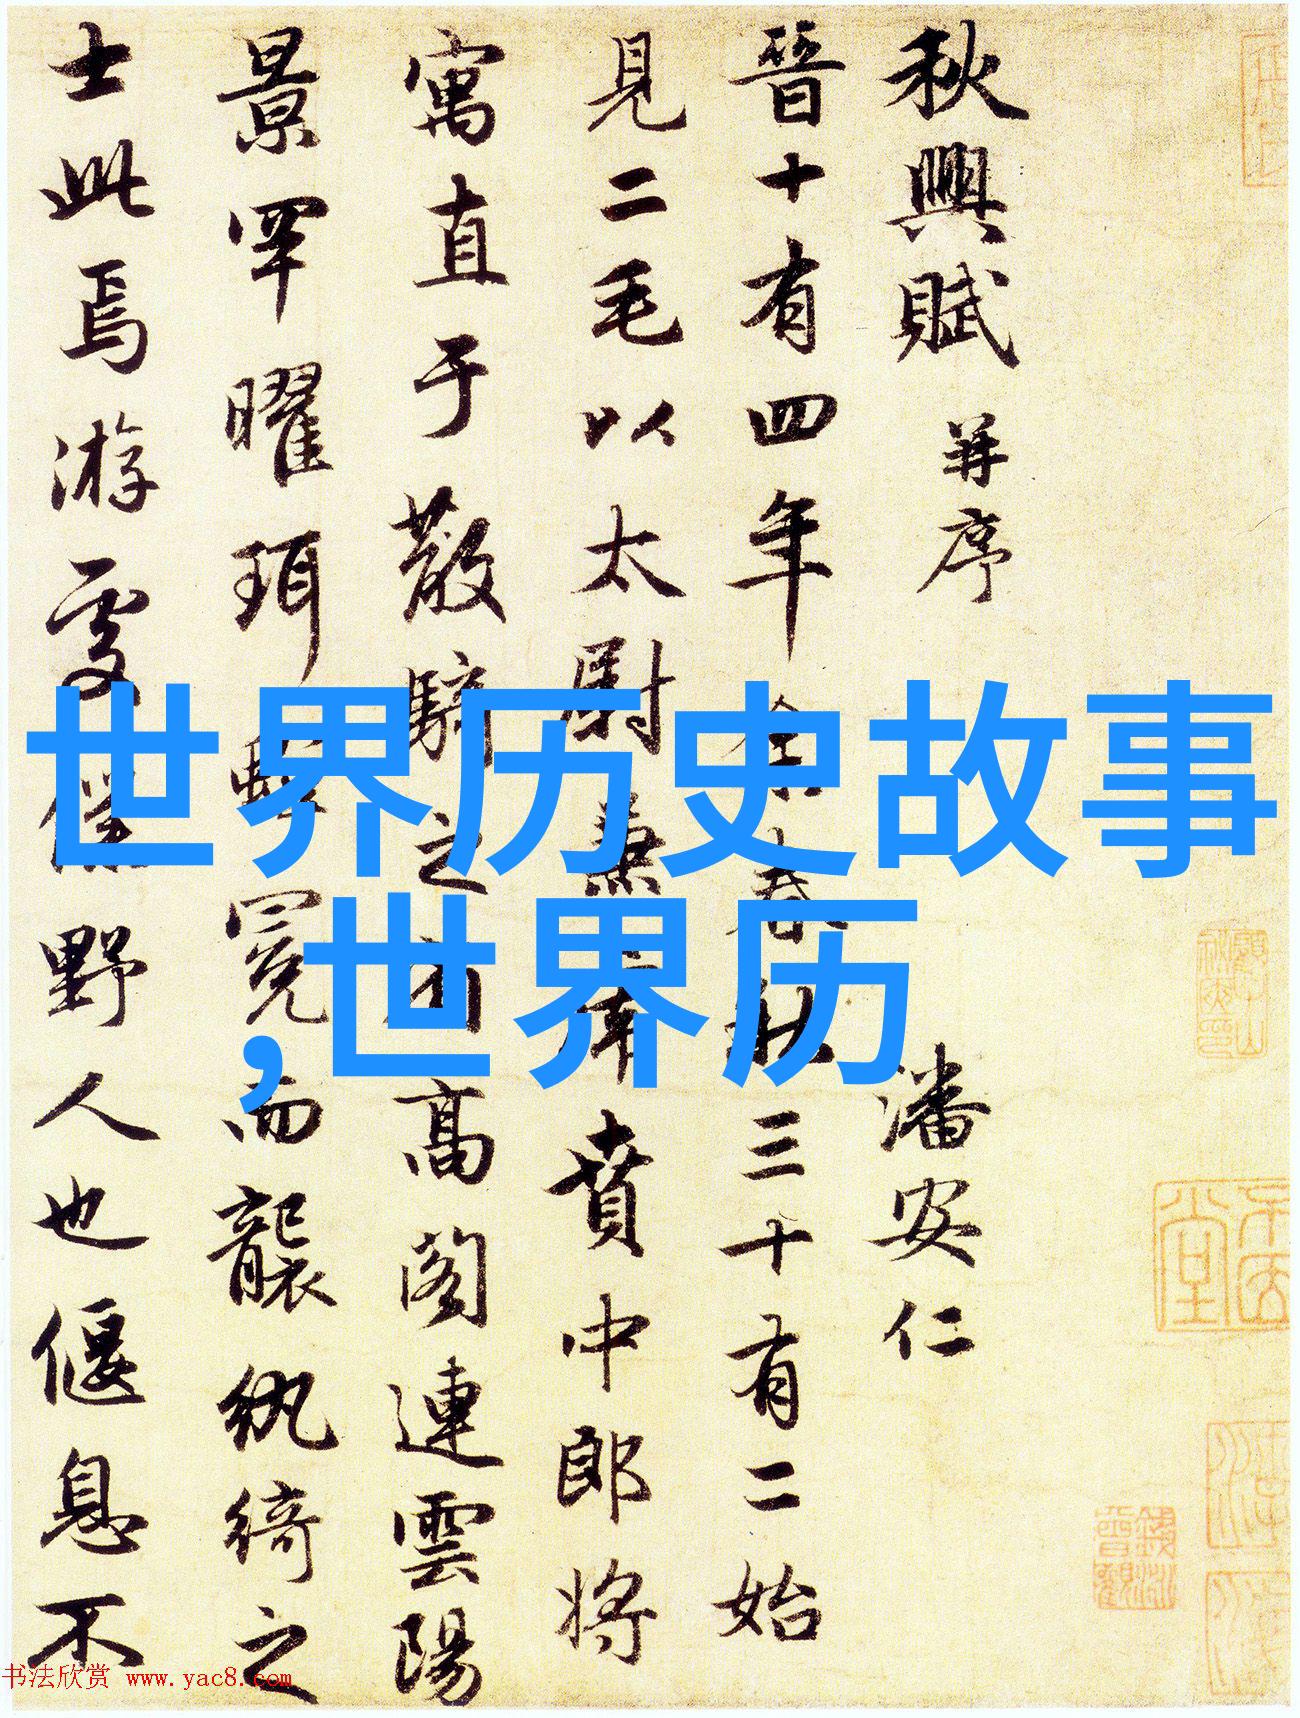 秋興賦 并序 潘安仁
晉十有四年余春秋三十有二始
見二毛以太尉兼虎賁中郎将
寓直于散騎之省高閣連雲陽
景罕曜珥蟬冕而襲紈綺之
士此焉游處僕野人也偃息不
世界历史故事
,世界历
书法欣赏 www.yac8.com